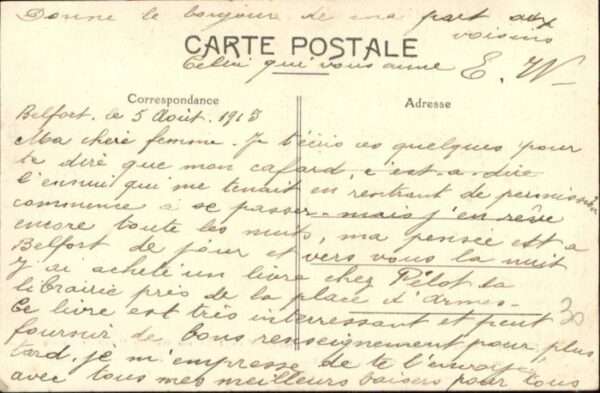 Donne le bonjour de ma part aux
voisins
CARTE POSTALE
Celui qui vous aime E. W
Correspondance
Adresse
Belfort. le 5 Août. 1915
Ma cheré femme. Je t'écris ces quelques pour
te diré que mon cafard, c'est-a-dire
l'ennui qui me tenait en rentrant de permission
commence a se passer mais j'en rêve
encore toute les nuits, ma pensée est a
Belfort de jour et vers vous la nuit
J'ai acheté un livre chez Pélot la
librairie près de la place d'Armes.
Ce livre est très interressant et peut
fournir de bons renseignement pour plus
tard. je m'empresse de te l'envoyer
avec tous mes meilleurs baisers pour tous
30